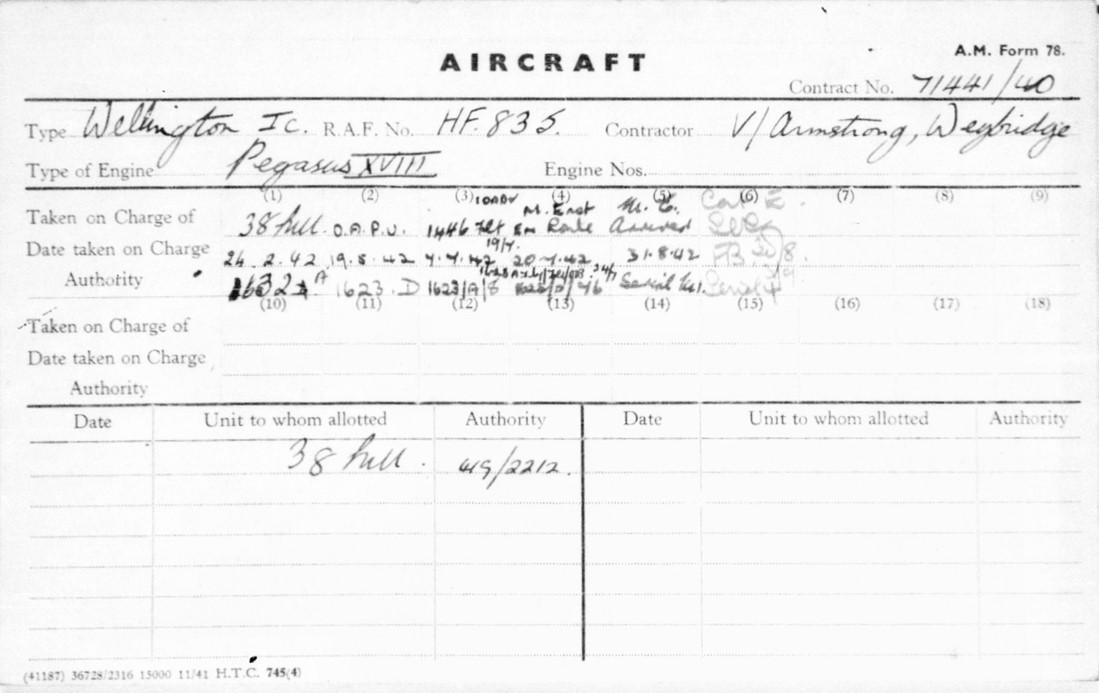 A.M. Form 78.
AIRCRAFT
Contract No. 71441/40
Type Wellington Ic. R.A.F. No. HF.835. Contractor V/Armstrong, Weybridge
Type of Engine Pegasus XVIII Engine Nos.
(1) (2) (3) (4) (5) (6) (7) (8) (9)
Taken on Charge of 38 M.U. O.A.P.U. 1446 Flt M. East En Route M.E. Arrived Cat E.
Date taken on Charge 24.2.42 19.5.42 7.7.42 19/7. 20.7.42 31.8.42
Authority 1632 A 1623.D 1623/A/8 Serial
(10) (11) (12) (13) (14) (15) (16) (17) (18)
Taken on Charge of
Date taken on Charge
Authority
Date Unit to whom allotted Authority Date Unit to whom allotted Authority
38 M.U. 419/2212.
(41187) 36728/2316 15000 11/41 H.T.C. 745(4)